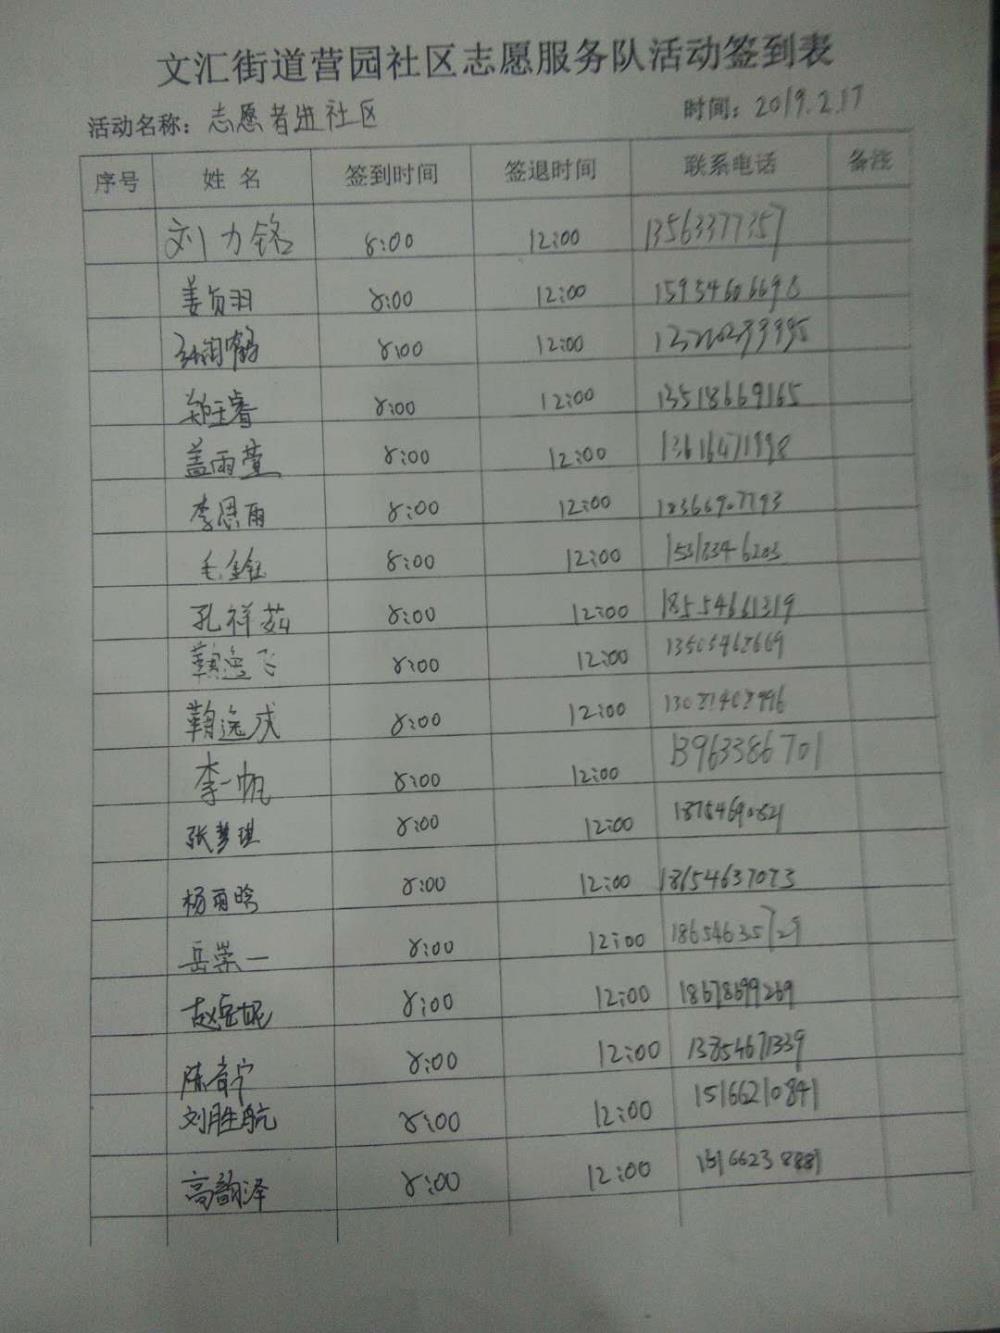 文汇街道营园社区志愿服务队活动签到表
活动名称：志愿者进社区 时间：2019.2.17
序号 姓名 签到时间 签退时间 联系电话 备注
刘力铭 8:00 12:00 13563377357
姜贞羽 8:00 12:00 15954606698
8:00 12:00
郑钰睿 8:00 12:00 13518669165
盖雨萱 8:00 12:00 13616471998
李恩雨 8:00 12:00 18366907793
毛金钰 8:00 12:00
孔祥茹 8:00 12:00 18554661319
鞠逸飞 8:00 12:00 13505468669
鞠逸成 8:00 12:00
李一帆 8:00 12:00 13963386701
张梦琪 8:00 12:00 18754690821
杨雨晗 8:00 12:00 18654637073
岳崇一 8:00 12:00 18654635729
赵岳妮 8:00 12:00 18678699269
陈奇宁 8:00 12:00 13854671339
刘胜航 8:00 12:00 15166210841
高韵泽 8:00 12:00 15166238881